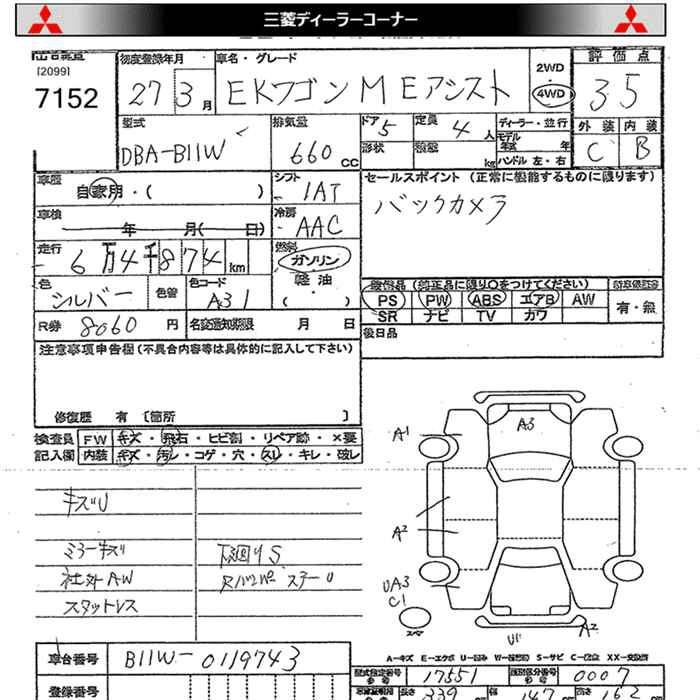 三菱ディーラーコーナー
[2099]
7152
初度登録年月
27 3月
車名・グレード
EKワゴン M Eアシスト
2WD
4WD
評価点
3 5
外装 内装
C B
型式
DBA-B11W
排気量
660cc
ドア 5
形状
定員 4人
kg
ディーラー・並行
モデル年式 年
ハンドル 左・右
車歴
自家用・( )
シフト
1AT
車検
年 月( 日)
冷房
AAC
走行
6万4千874km
燃料
ガソリン
軽油
( ・ )
色
シルバー
色替
色コード
A31
R券 8060円
名変通知期限 月 日
セールスポイント (正常に機能するものに限ります)
バックカメラ
装備品(純正品に限り○をつけてください)
PS PW ABS エアB AW
SR ナビ TV カワ
有・無
後日品
注意事項申告欄(不具合内容等は具体的に記入して下さい)
修復歴 有 〔箇所 〕
検査員 FW キズ・飛石・ヒビ割・リペア跡・×要
記入欄 内装 キズ・汚レ・コゲ・穴・スレ・キレ・破レ
キズU
ミラーキズ
下廻りS
社外AW
Rバンパ ステーU
スタットレス
A1
A3
A2
UA3
C1
スペア
U1
A2
A-キズ E-エクボ U-凹み
S-サビ
XX-交換済
車台番号 B11W-0119743
型式指定番号 17551
類別区分番号 0007
登録番号
長さ 339
幅 147
高さ